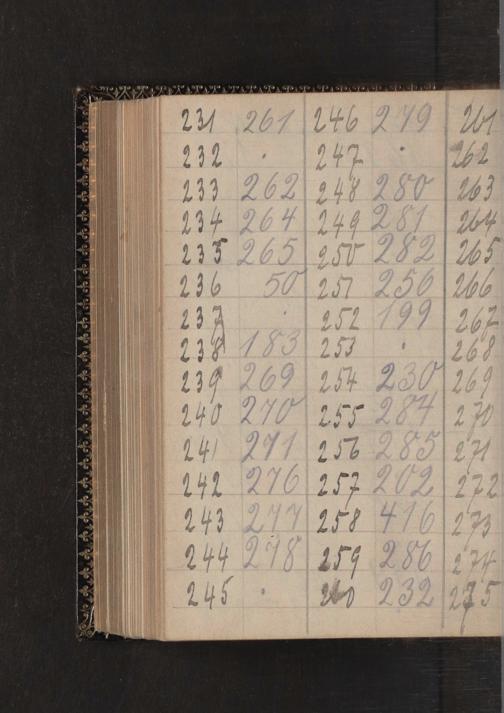 231 261 246 279 261
232 . 247 . 262
233 262 248 280 263
234 264 249 281 264
235 265 250 282 265
236 50 251 256 266
237 . 252 199 267
238 183 253 . 268
239 269 254 230 269
240 270 255 284 270
241 271 256 285 271
242 276 257 202 272
243 277 258 416 273
244 278 259 286 274
245 . 260 232 275